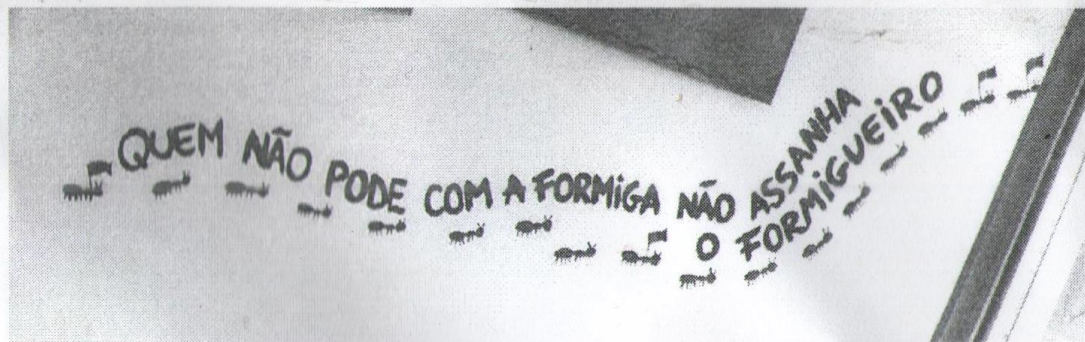 QUEM NÃO PODE COM A FORMIGA NÃO ASSANHA
O FORMIGUEIRO